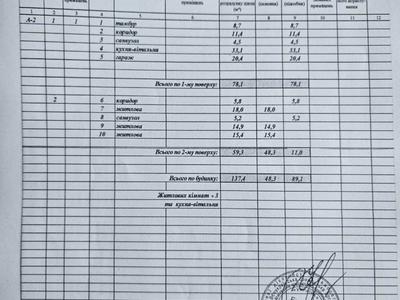 приміщень
приміщень
(м²)
(основна)
(підсобна)
приміщень
вання
1 2 3 4 5 6 7 8 9 10 11 12
А-2 1 1 1 тамбур 8,7 8,7
2 коридор 11,4 11,4
3 санвузол 4,5 4,5
4 кухня-вітальня 33,1 33,1
5 гараж 20,4 20,4
Всього по 1-му поверху: 78,1 78,1
2 6 коридор 5,8 5,8
7 житлова 18,0 18,0
8 санвузол 5,2 5,2
9 житлова 14,9 14,9
10 житлова 15,4 15,4
Всього по 2-му поверху: 59,3 48,3 11,0
Всього по будинку: 137,4 48,3 89,1
Житлових кімнат - 3
та кухня-вітальня